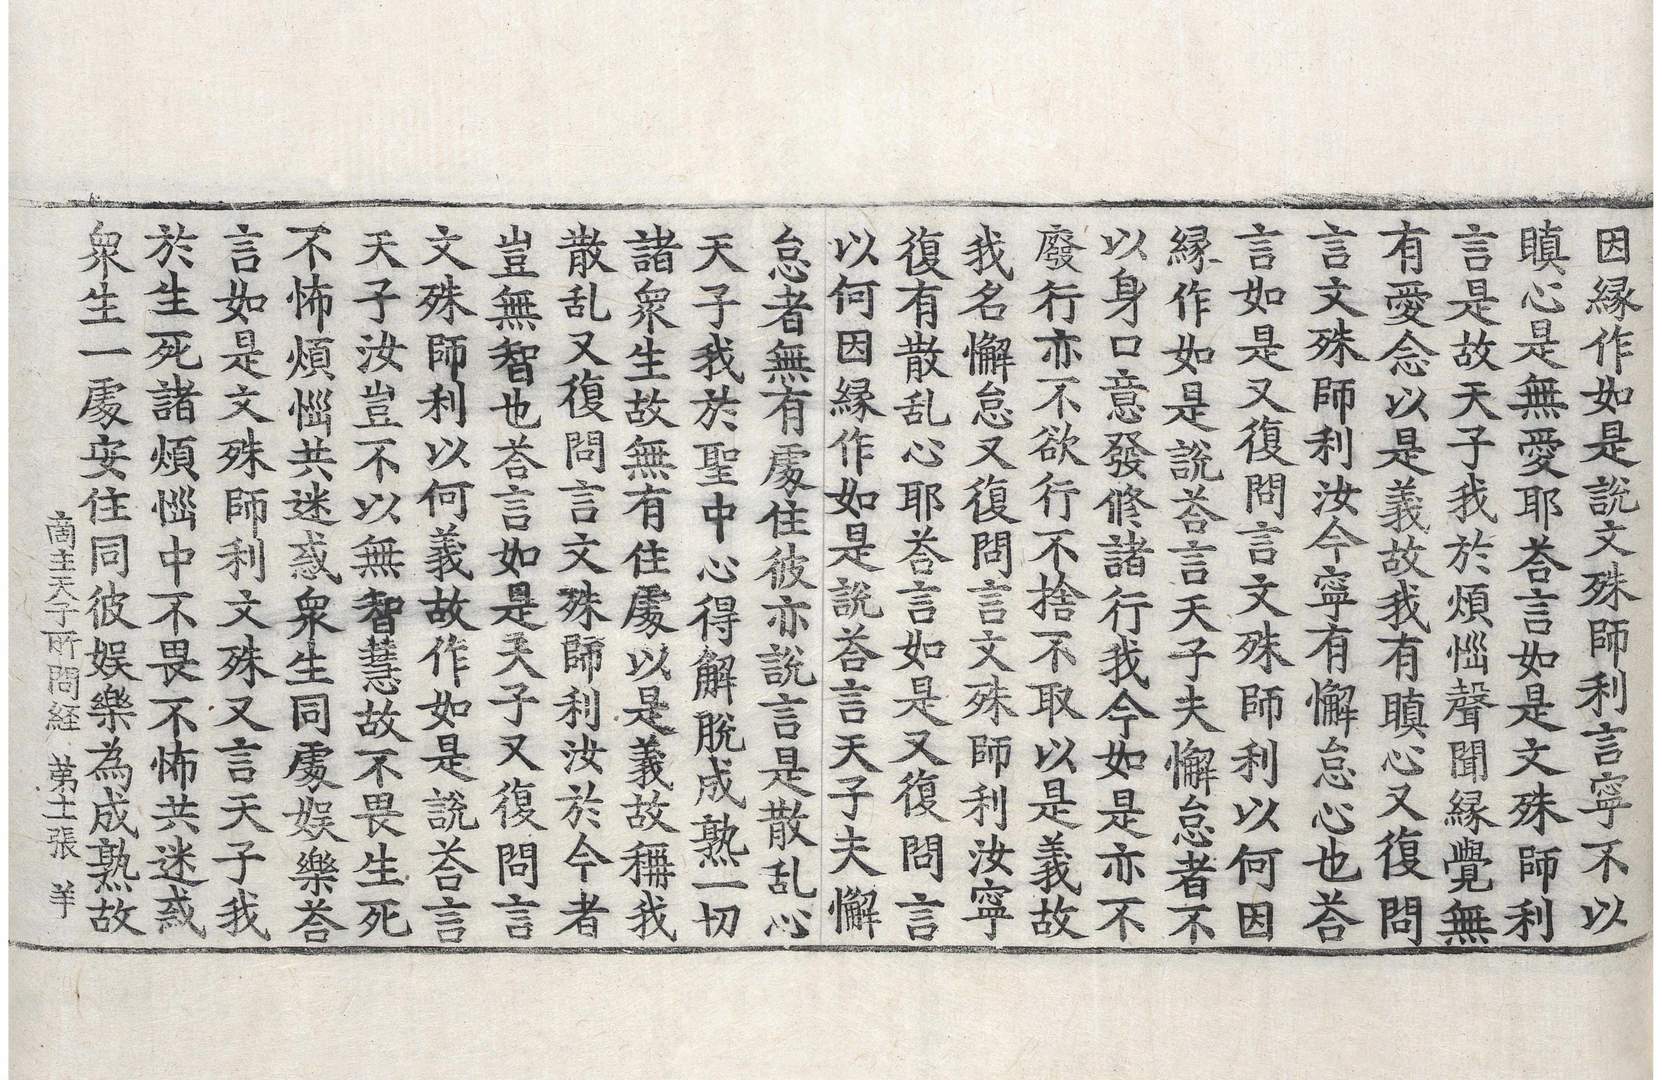 因縁作如是說文殊師利言寧不以
瞋心是無愛耶荅言如是文殊師利
言是故天子我於煩惱聲聞縁覺無
有愛念以是義故我有瞋心又復問
言文殊師利汝今寧有懈怠心也荅
言如是又復問言文殊師利以何因
縁作如是說荅言天子夫懈怠者不
以身口意發修諸行我今如是亦不
廢行亦不欲行不捨不取以是義故
我名懈怠又復問言文殊師利汝寧
復有散乱心耶荅言如是又復問言
以何因縁作如是說荅言天子夫懈
怠者無有處住彼亦說言是散乱心
天子我於聖中心得解脫成熟一切
諸衆生故無有住處以是義故稱我
散乱又復問言文殊師利汝於今者
豈無智也荅言如是天子又復問言
文殊師利以何義故作如是說荅言
天子汝豈不以無智慧故不畏生死
不怖煩惱共迷惑衆生同處娯樂荅
言如是文殊師利文殊又言天子我
於生死諸煩惱中不畏不怖共迷惑
衆生一處安住同彼娯樂為成熟故
商主天子所問経 第十一張 羊